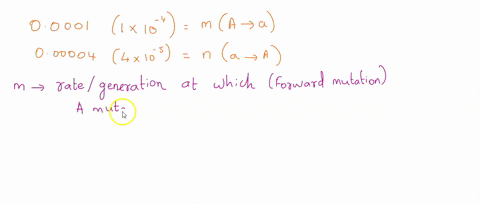 0.0001 (1 x 10⁻⁴) = m (A → a)
0.00004 (4 x 10⁻⁵) = n (a → A)
m → rate/generation at which (forward mutation)
A mut